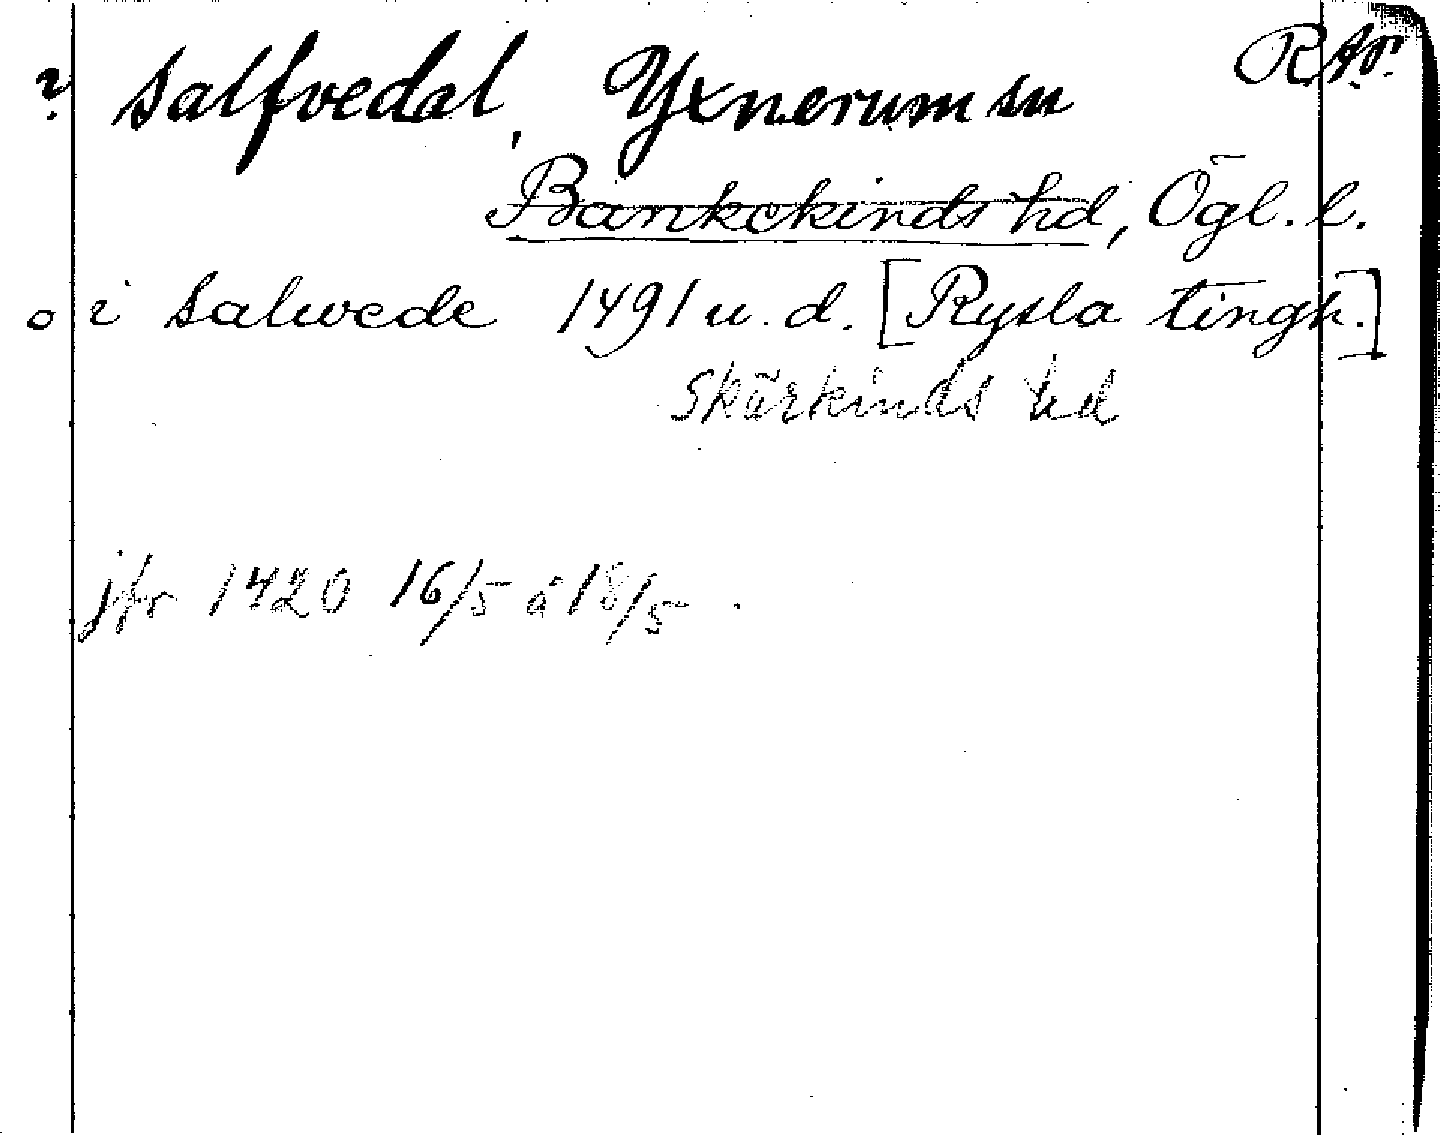 ? Salfvedal, Yxnerum sn R.Ap.
Bankekinds hd, Ögl. l.
o i Salwede 1491 u. d. [Rysla tingh.]
Skärkinds hd
jfr 1420 16/5 á 18/5.